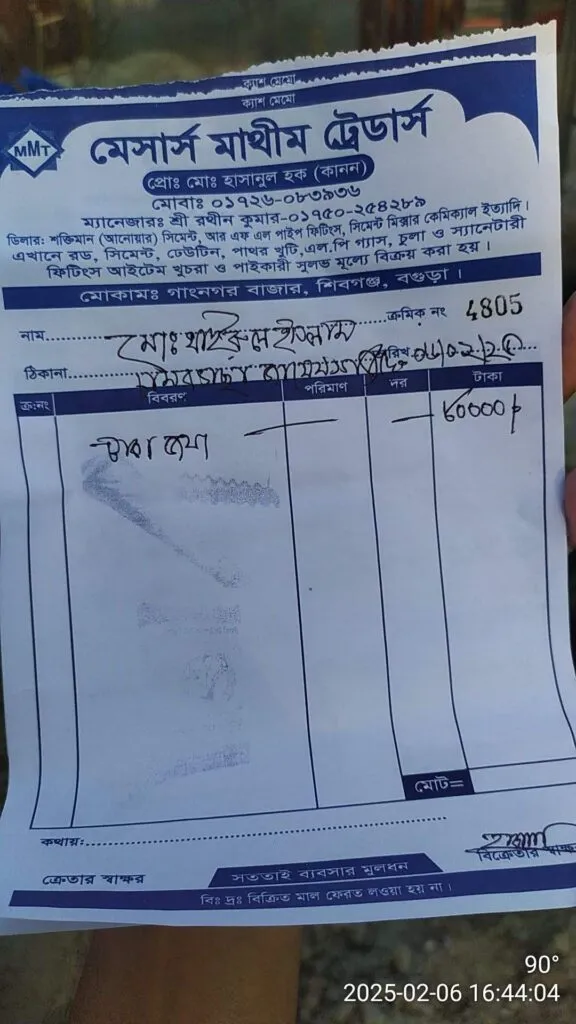 ক্যাশ মেমো
ক্যাশ মেমো
MMT
মেসার্স মাথীম ট্রেডার্স
প্রোঃ মোঃ হাসানুল হক (কানন)
মোবাঃ ০১৭২৬-০৮৩৯৩৬
ম্যানেজারঃ শ্রী রথীন কুমার-০১৭৫০-২৫৪২৮৯
ডিলার: শক্তিমান (আনোয়ার) সিমেন্ট, আর এফ এল পাইপ ফিটিংস, সিমেন্ট মিক্সার কেমিক্যাল ইত্যাদি।
এখানে রড, সিমেন্ট, ঢেউটিন, পাথর খুটি,এল.পি গ্যাস, চুলা ও স্যানেটারী
ফিটিংস আইটেম খুচরা ও পাইকারী সুলভ মূল্যে বিক্রয় করা হয়।
মোকামঃ গাংনগর বাজার, শিবগঞ্জ, বগুড়া।
নাম মোঃ খাইরুল ইসলাম ক্রমিক নং 4805
ঠিকানা
ক্র:নং বিবরণ পরিমাণ দর টাকা
টাকা জমা ৮০০০০/
মোট=
কথায়:
ক্রেতার স্বাক্ষর সততাই ব্যবসার মুলধন বিক্রেতার স্বাক্ষর
বিঃ দ্রঃ বিক্রিত মাল ফেরত লওয়া হয় না।
90°
2025-02-06 16:44:04